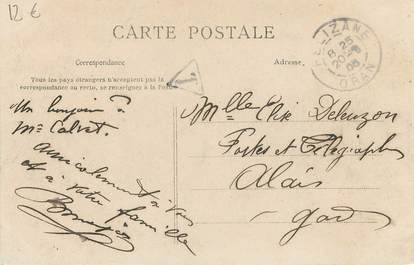 12 €
CARTE POSTALE
Correspondance
Adresse.
Tous les pays étrangers n'acceptent pas la
correspondance au recto, se renseignes à la Poste
RELIZANE
ORAN
T
Un bonjour à
Mr Calvet.
Amicalement à vous
et à votre famille
Mlle Deleuzon
Postes et Télégraphes
Alais
Gard